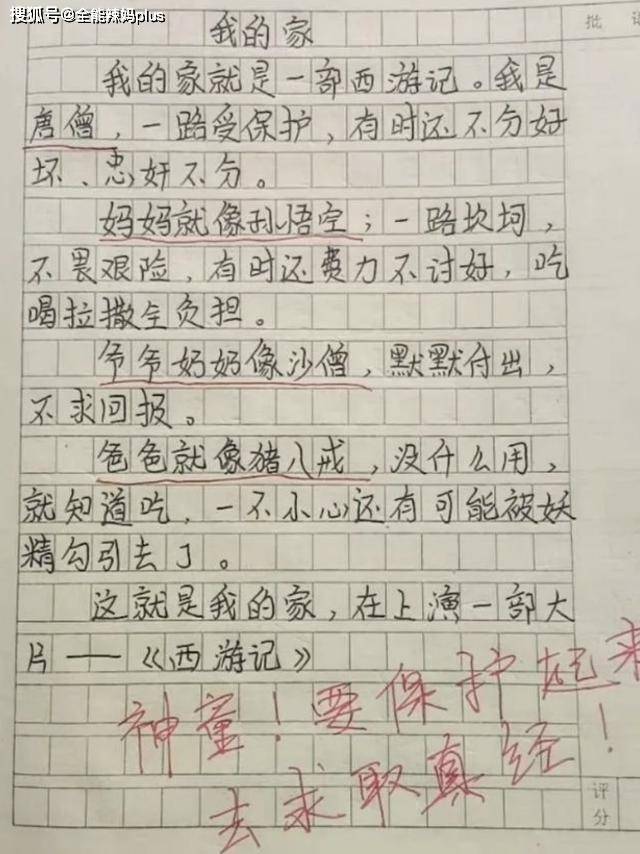 搜狐号@全能辣妈plus
批
我的家
我的家就是一部西游记。我是
唐僧，一路受保护，有时还不分好
坏、忠奸不分。
妈妈就像孙悟空；一路坎坷，
不畏艰险，有时还费力不讨好，吃
喝拉撒全负担。
爷爷奶奶像沙僧，默默付出，
不求回报。
爸爸就像猪八戒，没什么用，
就知道吃，一不小心还有可能被妖
精勾引去了。
这就是我的家，在上演一部大
片——《西游记》
神童！要保护起来
去求取真经！
评分